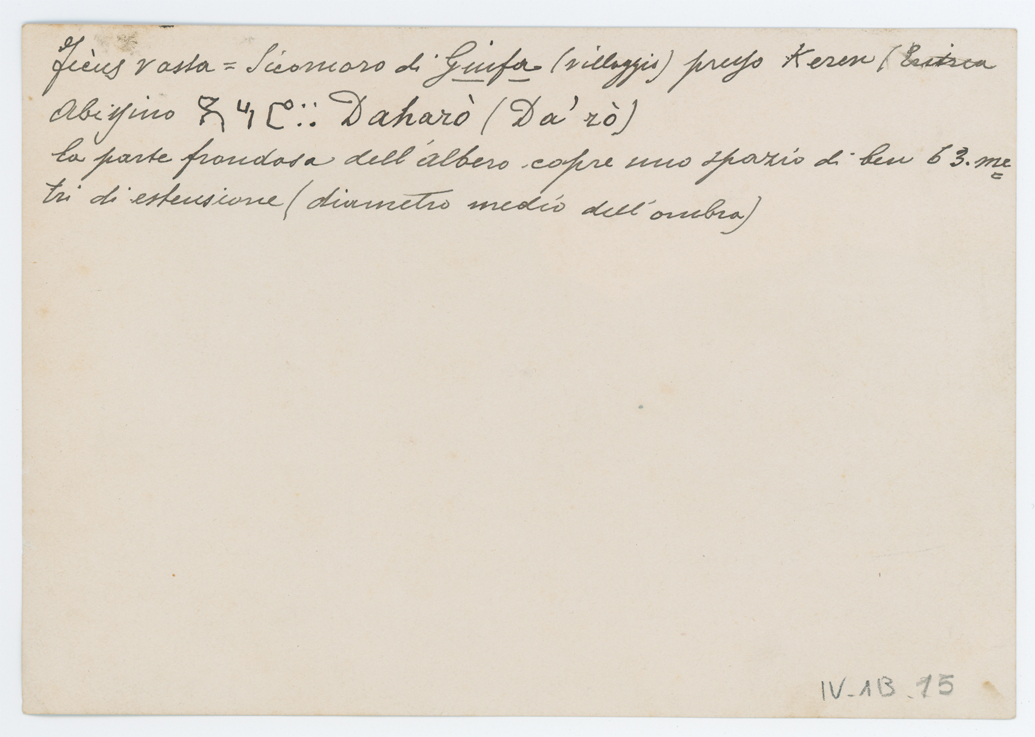 Ficus vasta = Sicomoro di Giufa (villaggio) presso Keren (Eritrea
Abissino ዳ ዓ ሮ ፡፡ Daharò (Da'rò)
la parte frondosa dell'albero copre uno spazio di ben 63. me
tri di estensione (diametro medio dell'ombra)
IV-1B-15